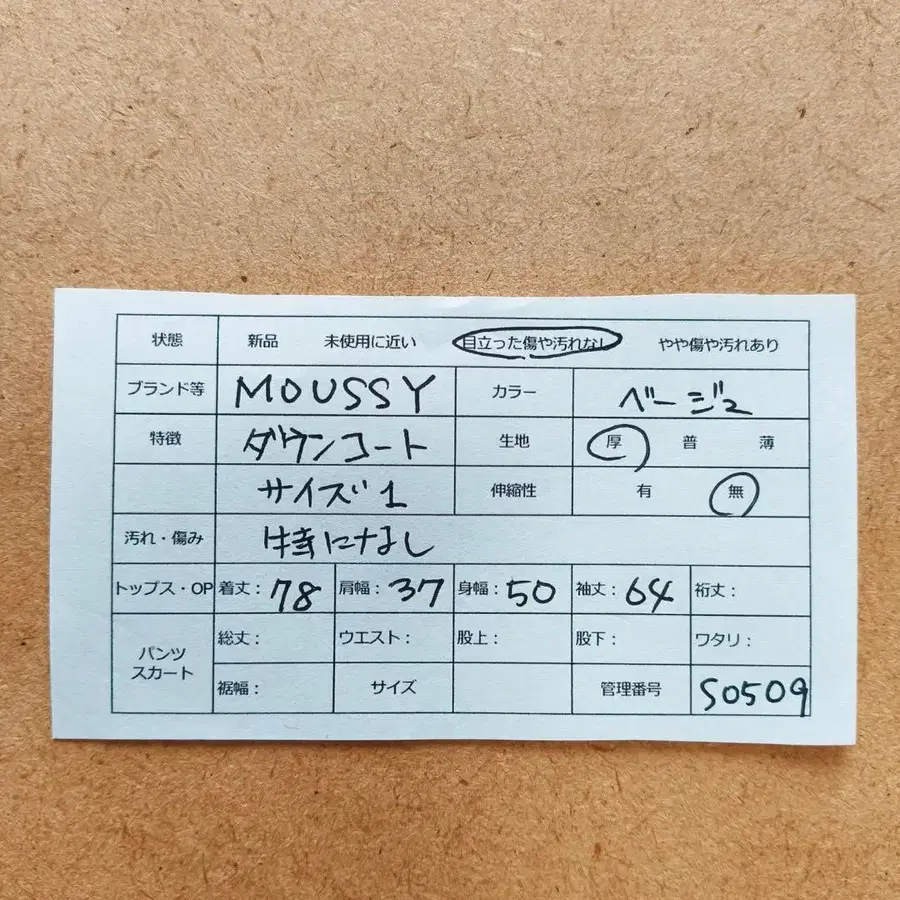 状態 新品 未使用に近い 目立った傷や汚れなし やや傷や汚れあり
ブランド等 MOUSSY カラー ベージュ
特徴 ダウンコート 生地 厚 普 薄
サイズ1 伸縮性 有 無
汚れ・傷み 特になし
トップス・OP 着丈: 78 肩幅: 37 身幅: 50 袖丈: 64 裄丈:
パンツ スカート 総丈: ウエスト: 股上: 股下: ワタリ:
裾幅: サイズ 管理番号 S0509